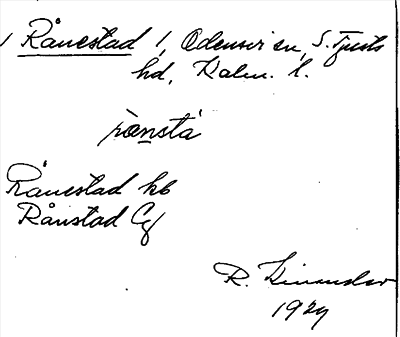 Rånestad 1, Odensvi sn, S. Tjusts
hd, Kalm. l.
rånsta
Rånestad hb
Rånstad Cg
R. Kinander
1929